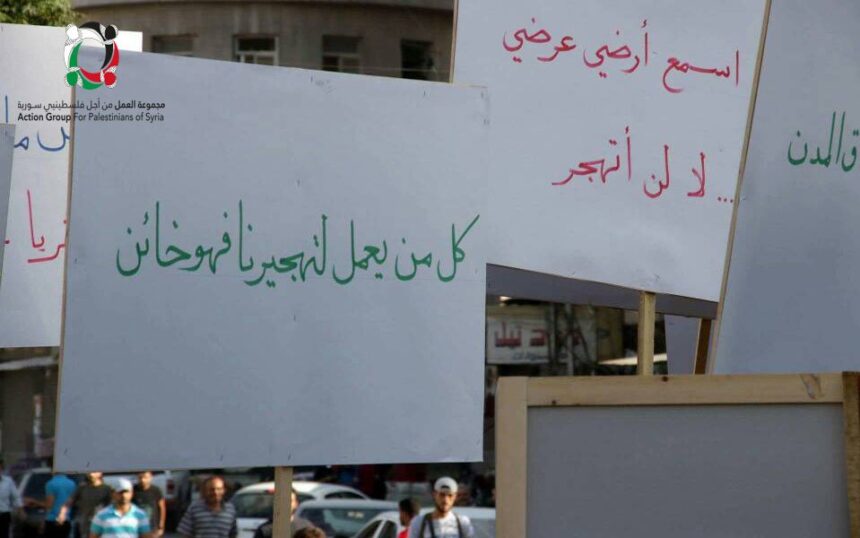 مجموعة العمل من أجل فلسطينيي سورية
Action Group For Palestinians of Syria
اسمع أرضي عرضي
لا لن أتهجر ...
كل من يعمل لتهجيرنا فهو خائن
ق المدن